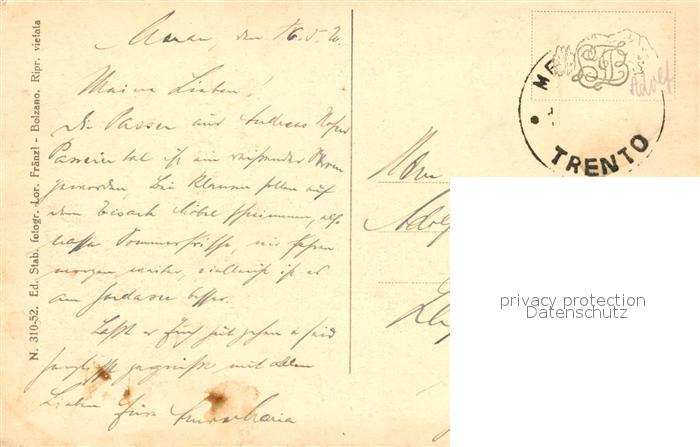 Meran, den 16.5.26.
Meine Lieben!
Die Passer aus Andreas Hofers
Passeiertal ist ein reißender Strom
geworden, bei Klausen sollen auf
dem Eisack Möbel schwimmen, also
nasse Sommerfrische, wir fahren
morgen weiter, vielleicht ist es
am Gardasee besser.
Laßt es Euch gut gehen & seid
herzlichst gegrüßt mit allen
Lieben Eure
N. 310-52. Ed. Stab. fotogr. Lor. Fränzl - Bolzano. Ripr. vietata
ME
TRENTO
Adolf
Herrn
Adolf
privacy protection
Datenschutz